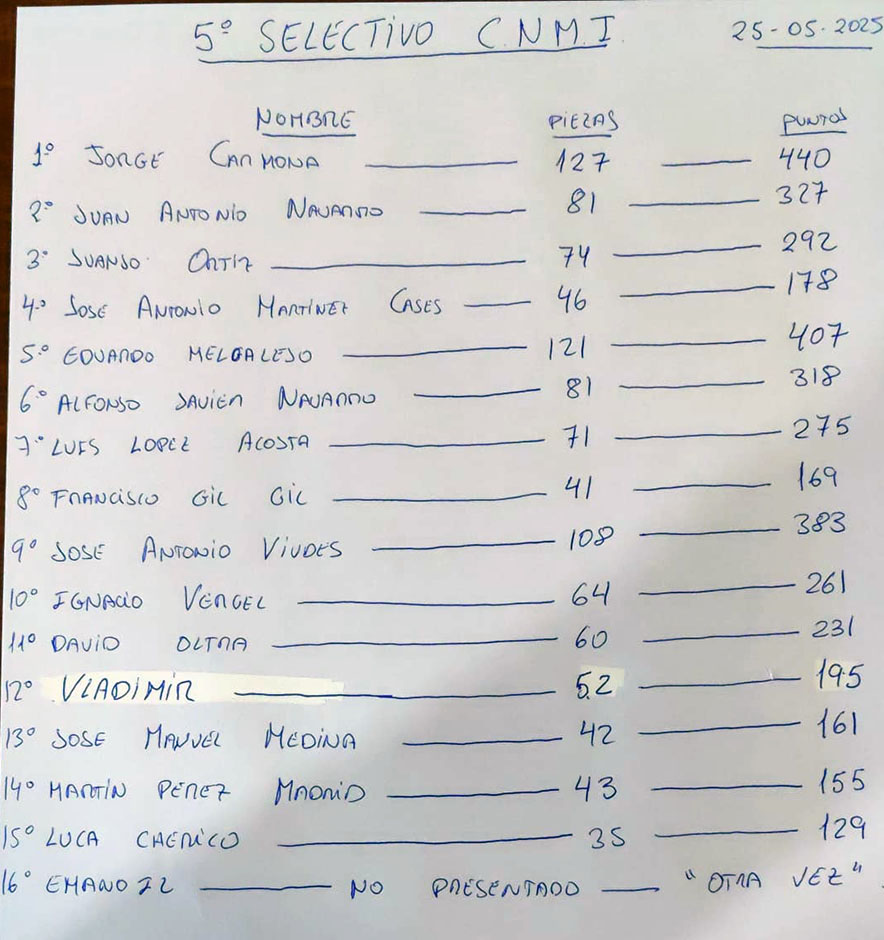 5º SELECTIVO C.N.M.I. 25-05-2025
NOMBRE PIEZAS PUNTOS
1º JORGE CARMONA 127 440
2º JUAN ANTONIO NAVARRO 81 327
3º JUANJO ORTIZ 74 292
4º JOSE ANTONIO MARTÍNEZ CASES 46 178
5º EDUARDO MELGALEJO 121 407
6º ALFONSO JAVIER NAVARRO 81 318
7º LUIS LOPEZ ACOSTA 71 275
8º FRANCISCO GIL GIL 41 169
9º JOSE ANTONIO VIUDES 108 383
10º IGNACIO VERGEL 64 261
11º DAVID OLTRA 60 231
12º VLADIMIR 52 195
13º JOSE MANUEL MEDINA 42 161
14º MARTÍN PEREZ MADRID 43 155
15º LUCA CHERICO 35 129
16º EMANOIL NO PRESENTADO "OTRA VEZ".